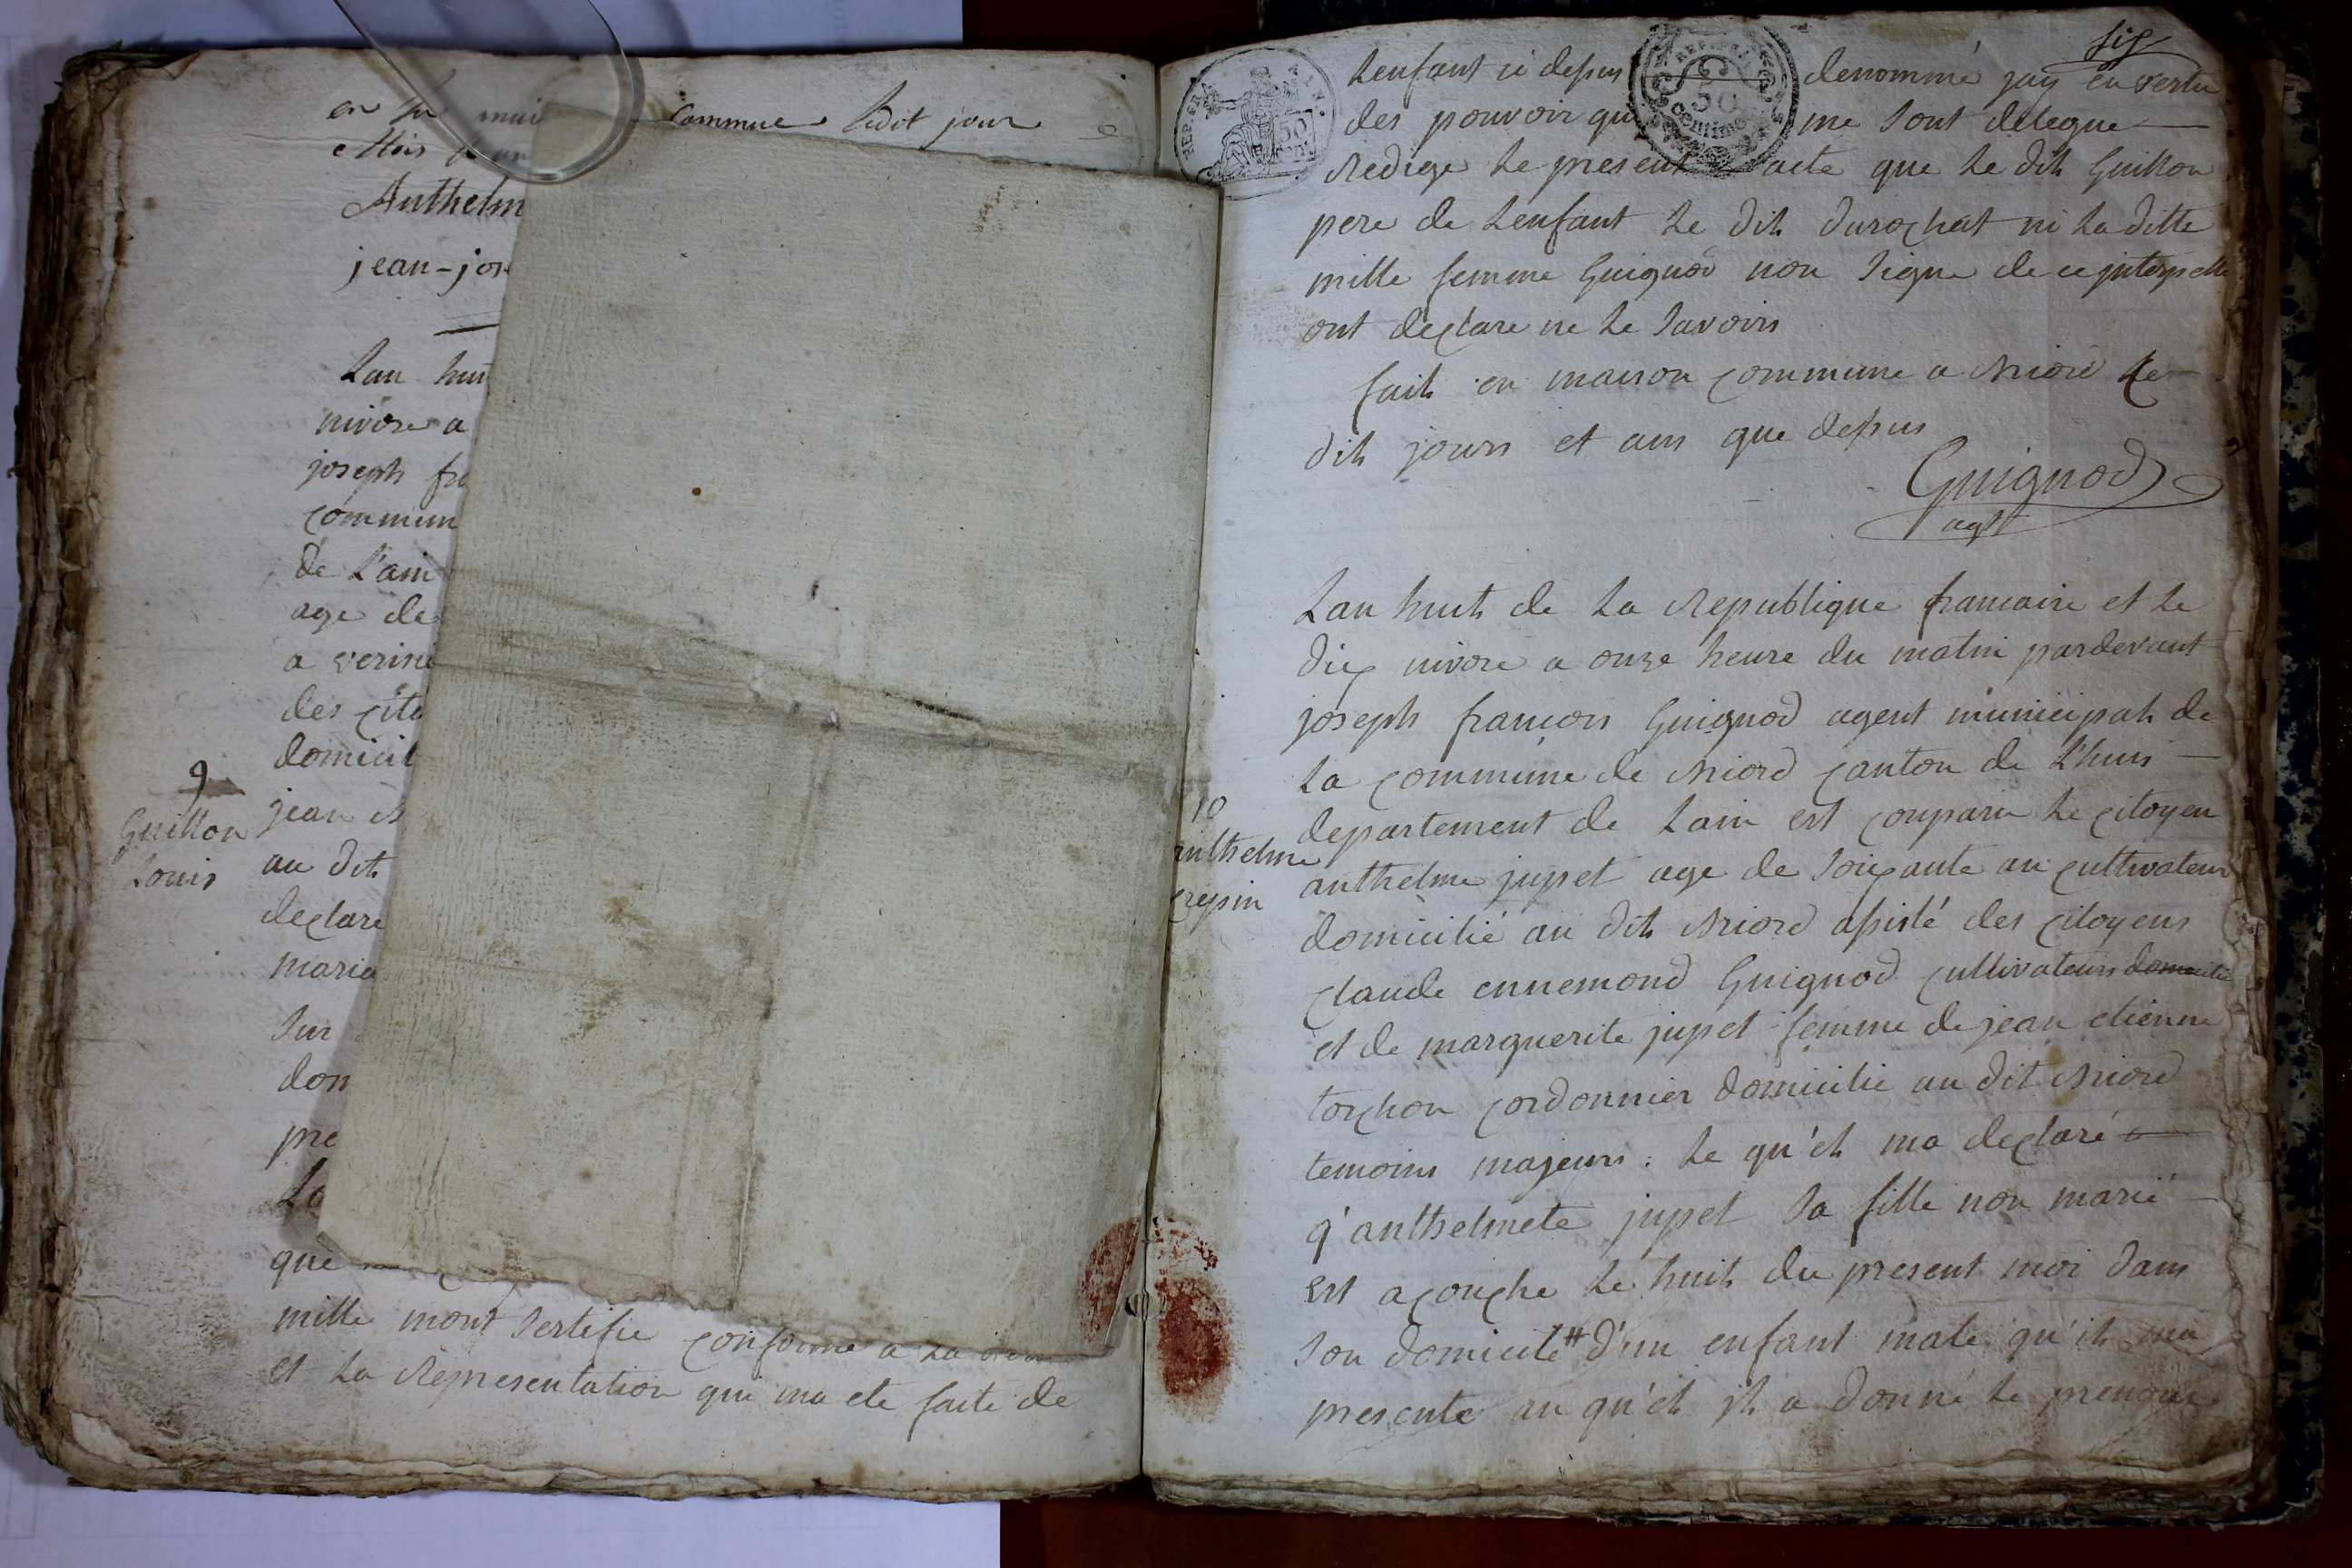 en commune Ledit jour
Mois
Anthelm
jean-jos
Lan hui
nivose a
joseph fra
commun
de L'ain
age de
a
des cito
domicil
9
Guillon
Louis
jean
au dit
declare
maria
sur
dom
pre
La
que
mille mont Sertifie conforme a La
et La Representation qui ma ete faite de
six
Lenfant ci desus denommé jay en vertu
des pouvoir qui me sont delegue
Redige Le present acte que Le dit Guillon
pere de Lenfant Le dit durochat ni La ditte
mille femme Guignod non signe de ce jnterpelle
ont declare ne Le Savoirs
fait en maison commune a Briord Le
dit jours et ans que desus
Guignod
agt
REP. FRA.
50
centimes
Lan huit de La Republique francaise et Le
dix nivose a onze heure du matin pardevant
joseph francois Guignod agent municipal de
La commune de Briord canton de L'huis
departement de Lain est conparu Le citoyen
10
anthelme
crepin
anthelme jupet age de soixante an cultivateur
domicilié au dit Briord assisté des citoyens
claude ennemond Guignod cultivateurs domicilie
et de marguerite jupet femme de jean etienne
torchon cordonnier domicilie au dit Briord
temoins majeurs : Le qu'el ma declaré
q'anthelmete jupet sa fille non marié
est acouche Le huit du present moi dans
son domicile # d'un enfant male qu'il ma
presente au qu'el jl a donné Le prenom